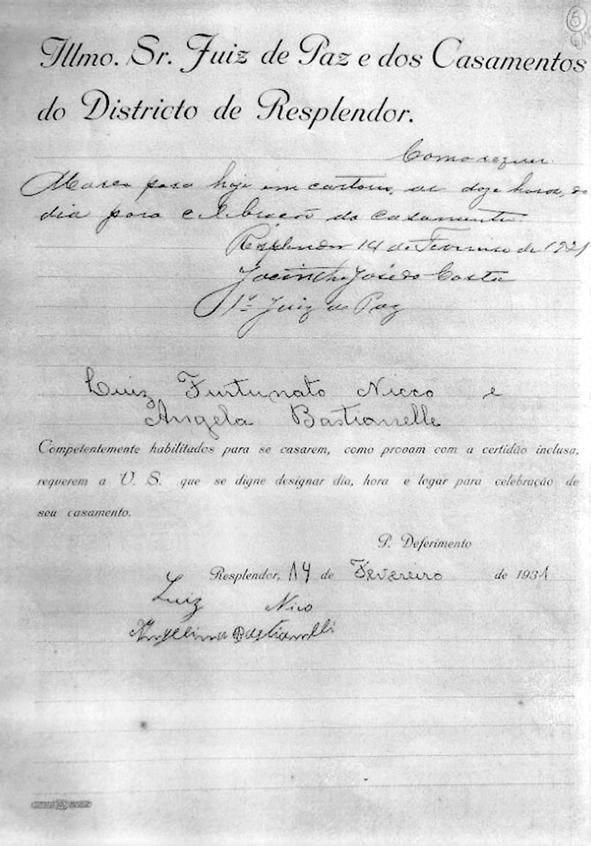 5
Illmo. Sr. Juiz de Paz e dos Casamentos
do Districto de Resplendor.
Como requer.
Marco para hoje em cartorio, as doze horas, do
dia para celebracão do casamento.
Resplendor 14 de Fevereiro de 1931
Jacintho José da Costa
1º Juiz de Paz
Luiz Furtunato Nicco e
Angela Bastianelle
Competentemente habilitados para se casarem, como provam com a certidão inclusa,
requerem a V. S. que se digne designar dia, hora e logar para celebração de
seu casamento.
P. Deferimento
Resplendor, 14 de Fevereiro de 1931
Luiz Nico
Angelina Bastianelli